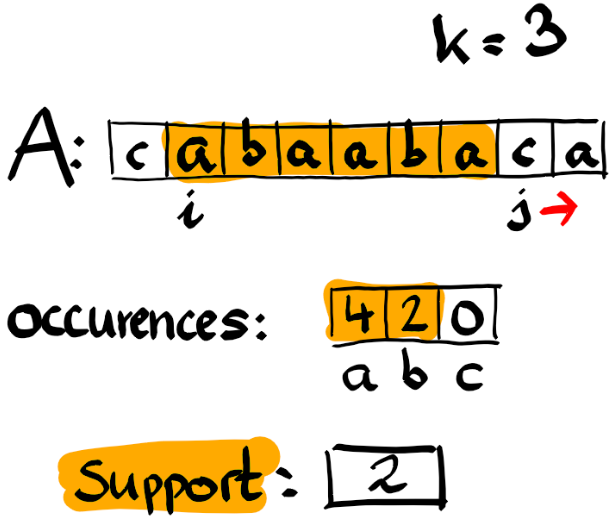 k = 3
A: c a b a a b a c a
i j →
occurences: 4 2 0
a b c
Support: 2